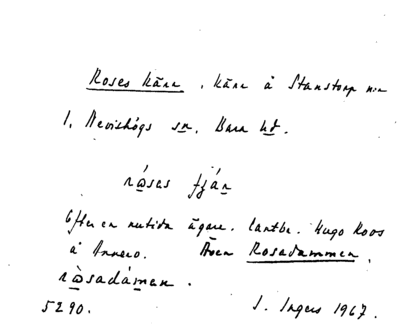 Roses kärr, kärr å Stanstorp nr
1, Nevishögs sn, Bara hd.
rå̀sas fjär
Efter en nutida ägare, lantbr. Hugo Roos
å Annero. Även Rosadammen,
rå̀sadámen.
5290. J. Ingers 1967.